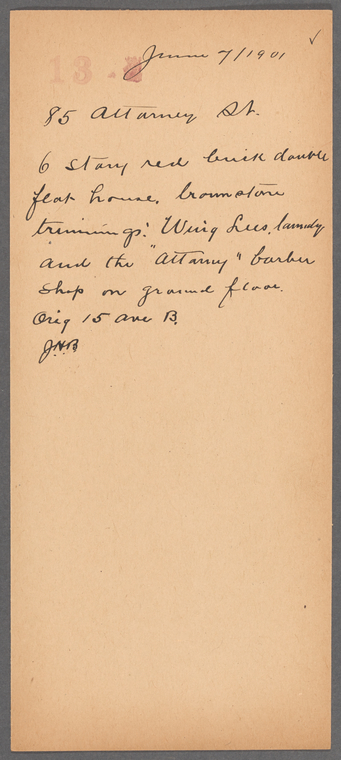 13.
June 7/1901 ✓
85 Attorney St.
6 story red brick double
flat house, brownstone
trimmings. Wing Lees laundy
and the "Attorney" barber
shop on ground floor.
Orig 15 Ave B.
J.H.B